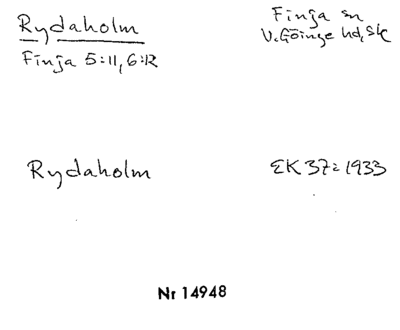 Rydaholm
Finja 5:11, 6:12
Finja sn
V. Göinge hd, Sk
Rydaholm
EK 37: 1933
Nr 14948